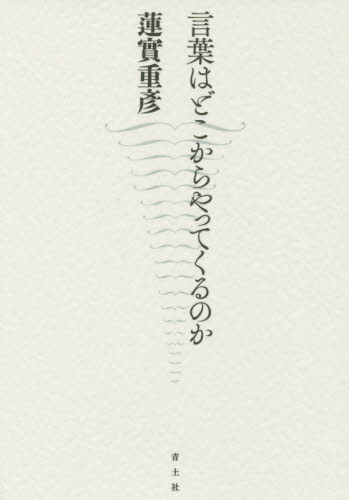 言葉はどこからやってくるのか
蓮實重彥
青土社